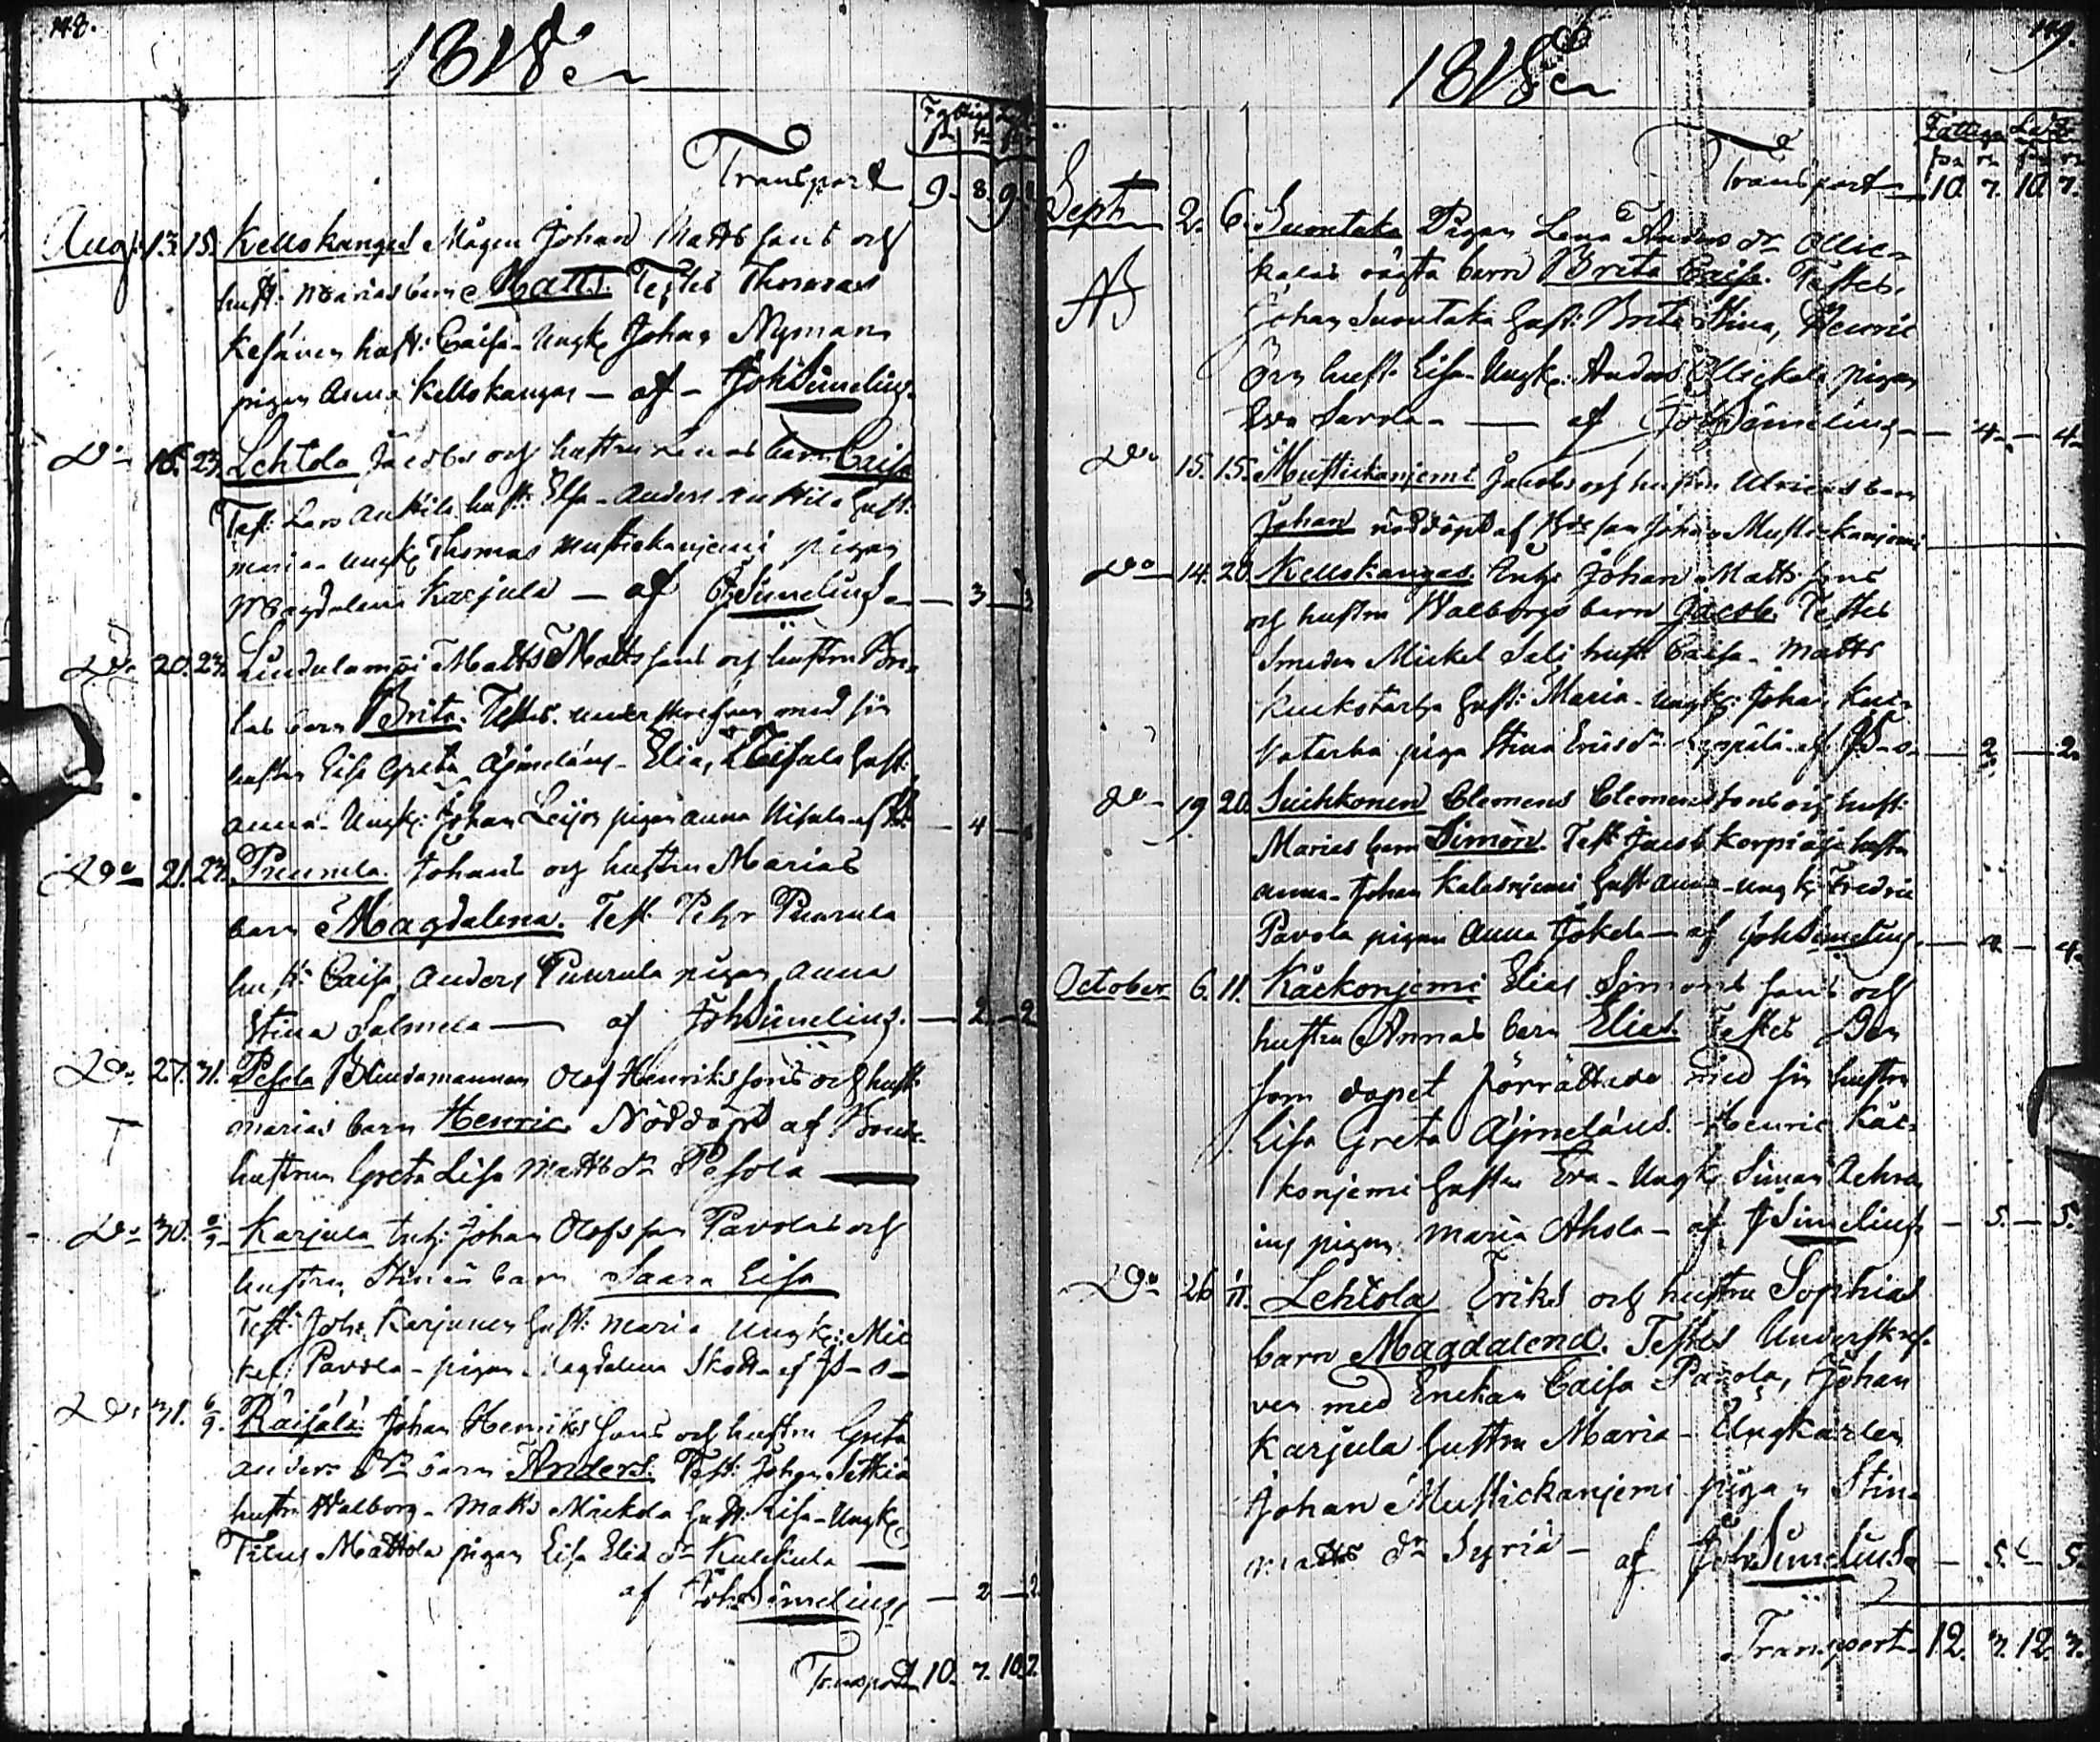 148.
1818
Transport 9. 8. 9. 8.
Aug. 13. 15. Kellokangas Mågen Johan Matts sons och
hust: Marias barn Matts. Testes Thomas
Kesänen hust: Caisa - Ungk: Johan Nyman
pigan Anna Kellokangas — af — Joh Simelius.
Do 16. 23. Lehtola Jacobs och hustru Lenas barn Caisa
Test: Lars Anttila hust: Elsa - Anders Anttila hust:
Maria - Ungk: Thomas Mustickanjemi pigan
Magdalena Karjula — af JSimelius. — 3 — 3
Do 20. 23. Matts Matts sons och hustru
barn Brita. Testes. underskrefven med sin
hustru Lisa Greta Ajmelæus - Elias hust:
Anna - Ungk: Johan Leijon pigan Anna — 4 —
Do 21. 23. Johans och hustru Marias
barn Magdalena. Test: Petter Puurula
hust: Caisa, Anders Puurula pigan Anna
Stina Salmela — af Joh Simelius. — 2 — 2
Do 27. 31. Pesola Olof Henriks sons och hust:
Marias barn Henric. Nöddöpt af Bonde
hustrun Greta Lisa Matts dr Pesola —
Do 30. 6/9 Karjula Johan Olofs son Pavolas och
hustru Stinas barn Saara Lisa
Test: Joh: Karjunen hust: Maria Ungk: Mic
kel Pavola - pigan Magdalena Skott - af JS—s—
Do 31. 6/9. Räisälä Johan Henriks sons och hustru Greta
Anders dr barn Anders. Test: Johan
hustru Walborg - Matts Mickola hust: Lisa - Ungk:
Mattola pigan Lisa Elias dr —
af Joh Simelius — 2 — 2
Transport 10. 7. 10. 7.
149.
1818
Fattiga
Transport 10. 7. 10. 7.
Sept. 2. 6. Suontaka Pigan Lena Anders dr Ollic
kalas oägta barn Brita Caisa. Testes.
NB Johan Suontaka hust: Brita Stina, Henric
hust: Lisa - Ungk: Anders Ollickala pigan
Eva Savola — af Joh Simelius — 4 — 4
Do 15. 15. Mustickanjemi Jacobs och hustru Ulricas barn
Johan nöddöpt af Johan Mustickanjemi
Do 14. 20. Kellokangas Johan Matts sons
och hustru Walborgs barn Jacob. Testes
Smeden Mickel Salj hust: Caisa - Matts
hust: Maria - Ungk: Johan
piga Stina Ericsdr af JS—s — 2 — 2
Do 19 20. Suihkonen Clemens Clemens sons och hust:
Marias barn Simon. Test: Jacob Korpioja hustru
Anna - Johan Kalasnjemi hust: Anna - Ungk: Fredric
Pavola pigan Anna Jokela — af Joh Simelius — 4 — 4
October 6. 11. Käckonjemi Elias Simons sons och
hustru Annas barn Elias. Testes Den
som dopet förrättade med sin hustru
Lisa Greta Ajmelæus. Henric Käc
konjemi hustru Eva - Ungk: Simon
pigan Maria Ahola — af JSimelius — 5. — 5.
Do 26 1/11. Lehtola Eriks och hustru Sophias
barn Magdalena. Testes Underskref
ven med Enckan Caisa Pavola, Johan
Karjula hustru Maria - Ungkarlen
Johan Mustickanjemi pigan Stina
Matts dr Syriä — af Joh Simelius — 5. — 5.
Transport 12. 7. 12. 7.